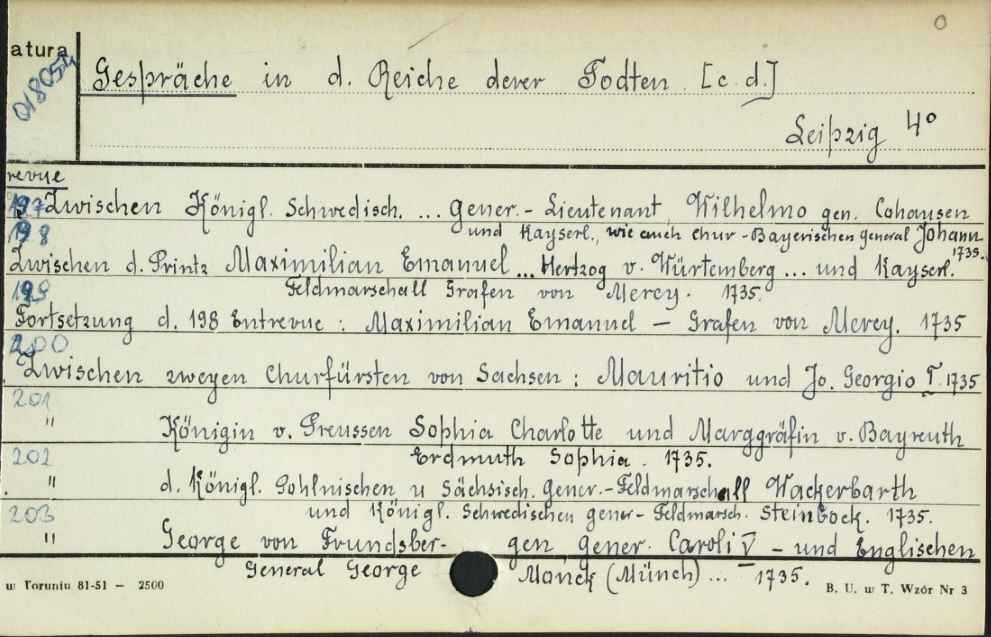 0
atura
018054
Gespräche in d. Reiche derer Todten [c. d.]
Leipzig 4°
revue
197 Zwischen Königl. Schwedisch. ... Gener.- Lieutenant Wilhelmo gen. Cohausen
und Kayserl., wie auch Chur-Bayerischen General Johann
1735.
198
Zwischen d. Printz Maximilian Emanuel ... Hertzog v. Würtemberg ... und Kayserl.
Feldmarschall Grafen von Mercy. 1735.
199
Fortsetzung d. 198 Entrevue : Maximilian Emanuel — Grafen von Mercy. 1735
200
Zwischen zweyen Churfürsten von Sachsen : Mauritio und Jo. Georgio I. 1735
201
" Königin v. Preussen Sophia Charlotte und Marggräfin v. Bayreuth
Erdmuth Sophia. 1735.
202
" d. Königl. Pohlnischen u Sächsisch. Gener.-Feldmarschall Wackerbarth
und Königl. Schwedischen gener- Feldmarsch. Steinbock. 1735.
203
" George von Frundsber- gen Gener. Caroli V – und Englischen
General George Monck (Münch) ... 1735.
w Toruniu 81-51 — 2500
B. U. w T. Wzór Nr 3